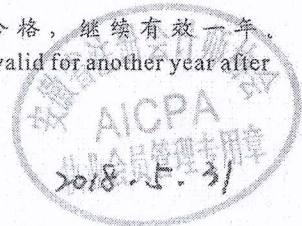 格，继续有效一年。
valid for another year after
安徽省注册会计师协会
AICPA
业会员管理专用章
2018.5.31